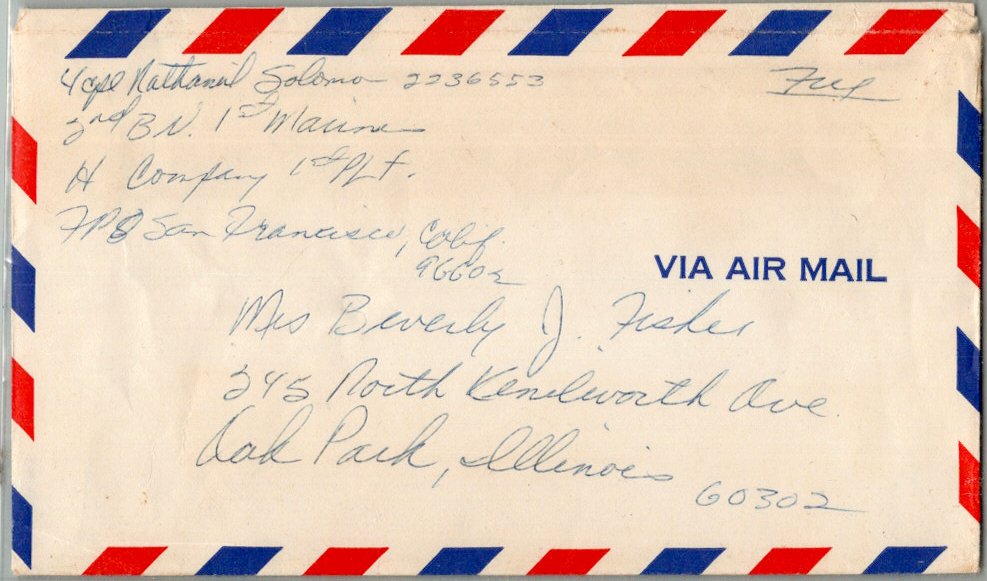 L/Cpl Nathanial Solomon 2236553
Free
2nd BN. 1st Marines
H Company 1st PLT.
FPO San Francisco, Calif.
96602
VIA AIR MAIL
Mrs Beverly J. Fisher
345 North Kenilworth Ave.
Oak Park, Illinois
60302